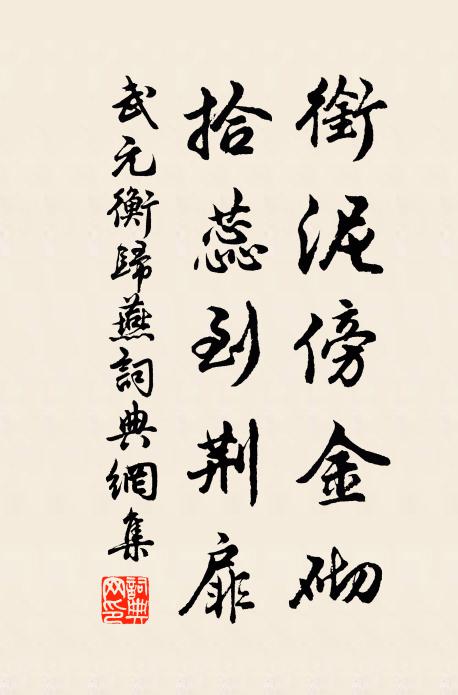 銜泥傍金砌
拾蕊到荆扉
武元衡歸燕詞典網集
詞典网印